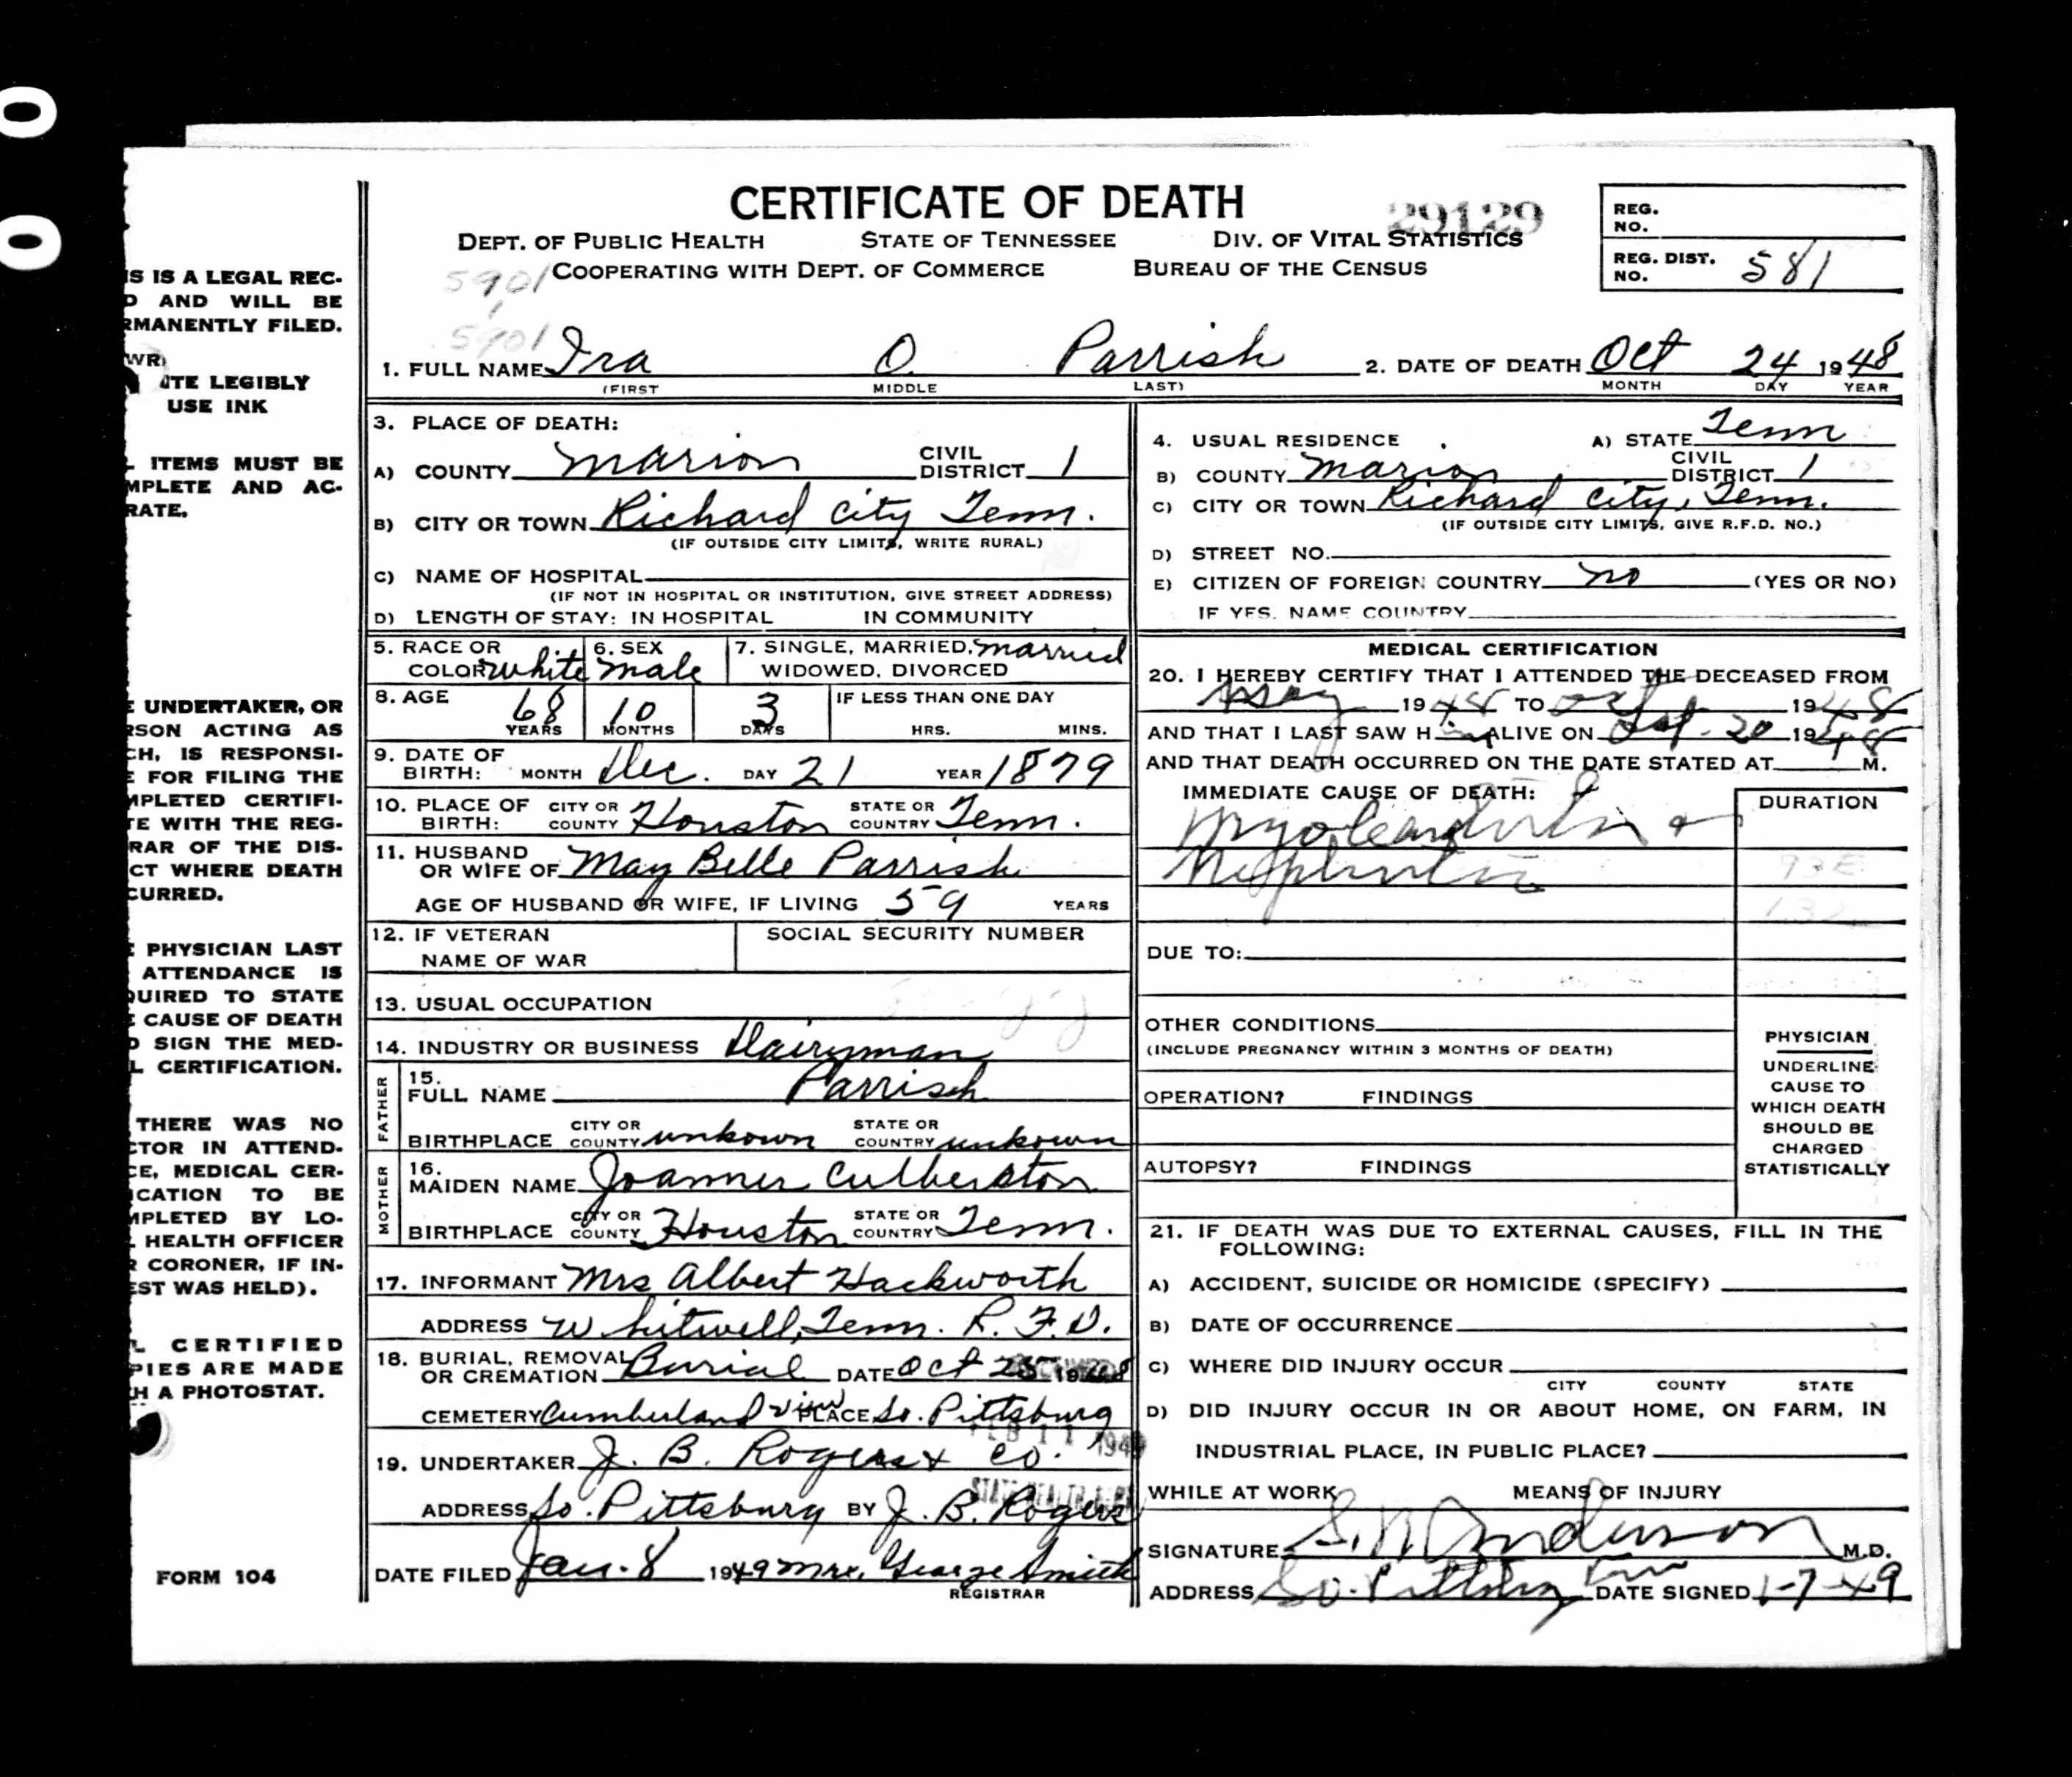 CERTIFICATE OF DEATH
29129
DEPT. OF PUBLIC HEALTH STATE OF TENNESSEE DIV. OF VITAL STATISTICS
COOPERATING WITH DEPT. OF COMMERCE BUREAU OF THE CENSUS
REG. NO.
REG. DIST. NO. 581
5901
5901
1. FULL NAME Ira O. Parrish 2. DATE OF DEATH Oct 24 1948
(FIRST MIDDLE LAST) MONTH DAY YEAR
S IS A LEGAL REC-
D AND WILL BE
RMANENTLY FILED.
WR
ITE LEGIBLY
USE INK
L ITEMS MUST BE
MPLETE AND AC-
RATE.
E UNDERTAKER, OR
RSON ACTING AS
CH, IS RESPONSI-
E FOR FILING THE
MPLETED CERTIFI-
TE WITH THE REG-
RAR OF THE DIS-
CT WHERE DEATH
CURRED.
E PHYSICIAN LAST
ATTENDANCE IS
QUIRED TO STATE
E CAUSE OF DEATH
D SIGN THE MED-
L CERTIFICATION.
THERE WAS NO
CTOR IN ATTEND-
CE, MEDICAL CER-
ICATION TO BE
MPLETED BY LO-
L HEALTH OFFICER
R CORONER, IF IN-
EST WAS HELD).
L CERTIFIED
PIES ARE MADE
H A PHOTOSTAT.
FORM 104
3. PLACE OF DEATH:
A) COUNTY Marion CIVIL DISTRICT 1
B) CITY OR TOWN Richard City Tenn.
(IF OUTSIDE CITY LIMITS, WRITE RURAL)
C) NAME OF HOSPITAL
(IF NOT IN HOSPITAL OR INSTITUTION, GIVE STREET ADDRESS)
D) LENGTH OF STAY: IN HOSPITAL IN COMMUNITY
5. RACE OR COLOR white 6. SEX male 7. SINGLE, MARRIED, WIDOWED, DIVORCED married
8. AGE 68 YEARS 10 MONTHS 3 DAYS IF LESS THAN ONE DAY HRS. MINS.
9. DATE OF BIRTH: MONTH Dec. DAY 21 YEAR 1879
10. PLACE OF BIRTH: CITY OR COUNTY Houston STATE OR COUNTRY Tenn.
11. HUSBAND OR WIFE OF May Belle Parrish
AGE OF HUSBAND OR WIFE, IF LIVING 59 YEARS
12. IF VETERAN NAME OF WAR SOCIAL SECURITY NUMBER
13. USUAL OCCUPATION
14. INDUSTRY OR BUSINESS Dairyman
FATHER
15. FULL NAME Parrish
BIRTHPLACE CITY OR COUNTY unkown STATE OR COUNTRY unkown
MOTHER
16. MAIDEN NAME Joanner Culberston
BIRTHPLACE CITY OR COUNTY Houston STATE OR COUNTRY Tenn.
17. INFORMANT Mrs Albert Hackworth
ADDRESS Whitwell, Tenn. R.F.D.
18. BURIAL, REMOVAL OR CREMATION Burial DATE Oct 25 1948
CEMETERY Cumberland View PLACE So. Pittsburg
FEB 11 1949
19. UNDERTAKER J. B. Rogers & Co.
ADDRESS So. Pittsburg BY J. B. Rogers
DATE FILED Jan. 8 1949 Mrs. George Smith
REGISTRAR
4. USUAL RESIDENCE A) STATE Tenn
B) COUNTY Marion CIVIL DISTRICT 1
C) CITY OR TOWN Richard City, Tenn.
(IF OUTSIDE CITY LIMITS, GIVE R.F.D. NO.)
D) STREET NO.
E) CITIZEN OF FOREIGN COUNTRY no (YES OR NO)
IF YES, NAME COUNTRY
MEDICAL CERTIFICATION
20. I HEREBY CERTIFY THAT I ATTENDED THE DECEASED FROM
May 1948 TO Oct 1948
AND THAT I LAST SAW H im ALIVE ON 20 1948
AND THAT DEATH OCCURRED ON THE DATE STATED AT M.
IMMEDIATE CAUSE OF DEATH: DURATION
Myocarditis &
Nephritis
93E
132
DUE TO:
OTHER CONDITIONS
(INCLUDE PREGNANCY WITHIN 3 MONTHS OF DEATH)
OPERATION? FINDINGS
AUTOPSY? FINDINGS
PHYSICIAN
UNDERLINE
CAUSE TO
WHICH DEATH
SHOULD BE
CHARGED
STATISTICALLY
21. IF DEATH WAS DUE TO EXTERNAL CAUSES, FILL IN THE
FOLLOWING:
A) ACCIDENT, SUICIDE OR HOMICIDE (SPECIFY)
B) DATE OF OCCURRENCE
C) WHERE DID INJURY OCCUR
CITY COUNTY STATE
D) DID INJURY OCCUR IN OR ABOUT HOME, ON FARM, IN
INDUSTRIAL PLACE, IN PUBLIC PLACE?
WHILE AT WORK MEANS OF INJURY
SIGNATURE Anderson M.D.
ADDRESS So. Pittsburg Tenn DATE SIGNED 1-7-49